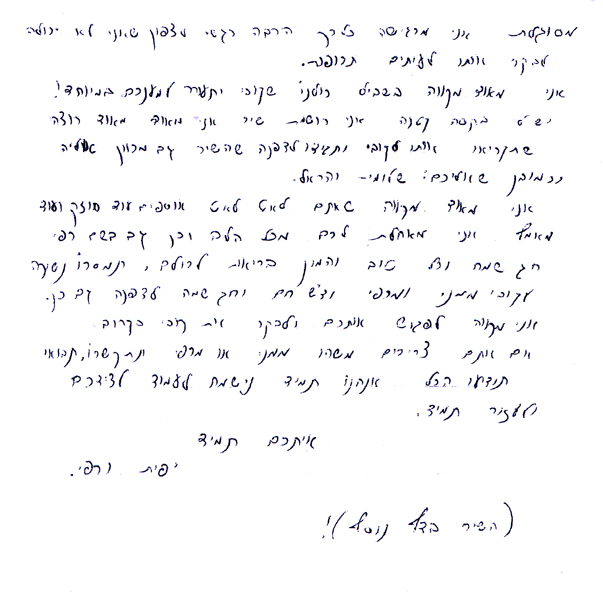 מסוגלת אני מרגישה כלכך הרבה רגשי מצפון שאני לא יכולה
לבקר אותו לעיתים תרופות.
אני מאוד מקווה בשביל כולנו שקובי יתעורר למענכם במיוחד!
יש לי בקשה קטנה אני רושמת שיר אני מאוד מאוד רוצה
שתקריאו אותו לקובי ותגידו לדפנה שהשיר גם מכוון אליה
וכמובן שאליכם: שלומית והראל.
אני מאוד מקווה שאתם לאט לאט אוספים עוד חוזק ועוד
מאמץ אני מאחלת לכם מכל הלב וכן גם בשם רפי
חג שמח וכל טוב והמון בריאות לכולם, ותמסרו נשיקה
לקובי ממני ומרפי וד"ש חם וחג שמח לדפנה גם כן.
אני מקווה לפגוש אתכם ולבקר את קובי בקרוב
אם אתם צריכים משהו ממני או מרפי תתקשרו, תבואי
תודיעו הכל אנחנו תמיד נישמח לעמוד לצידכם
ולעזור תמיד.
איתכם תמיד
יפית ורפי.
(השיר בדף נוסף)!